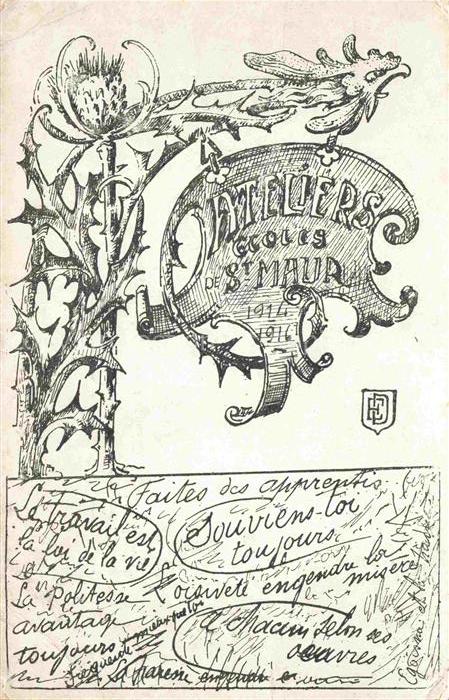 ATELIERS
ECOLES
DE St MAUR
1914
1916
Faites des apprentis
Le travail est
la loi de la vie
Souviens-toi
toujours
L'oisiveté engendre la
misère
La Politesse
avantage
toujours
A chacun selon ses
œuvres
La Paresse engendre